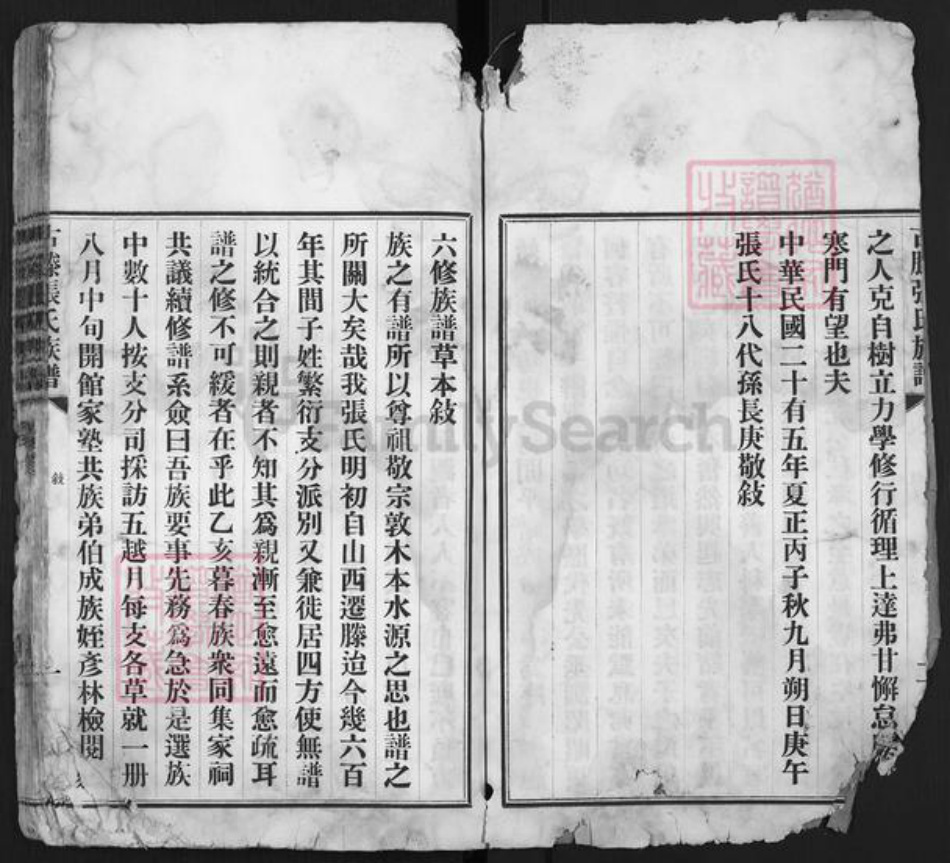 之人克自樹立力學修行循理上達弗甘懈怠
寒門有望也夫
中華民國二十有五年夏正丙子秋九月朔日庚午
張氏十八代孫長庚敬敍
六修族譜草本敍
族之有譜所以尊祖敬宗敦木本水源之思也譜之
所關大矣哉我張氏明初自山西遷滕迨今幾六百
年其間子姓繁衍支分派別又兼徙居四方使無譜
以統合之則親者不知其爲親漸至愈遠而愈疏耳
譜之修不可緩者在乎此乙亥暮春族衆同集家祠
共議續修譜系僉曰吾族要事先務爲急於是選族
中數十人按支分司採訪五越月每支各草就一册
八月中旬開館家塾共族弟伯成族姪彥林檢閱
古滕張氏族譜
敍
一
FamilySearch